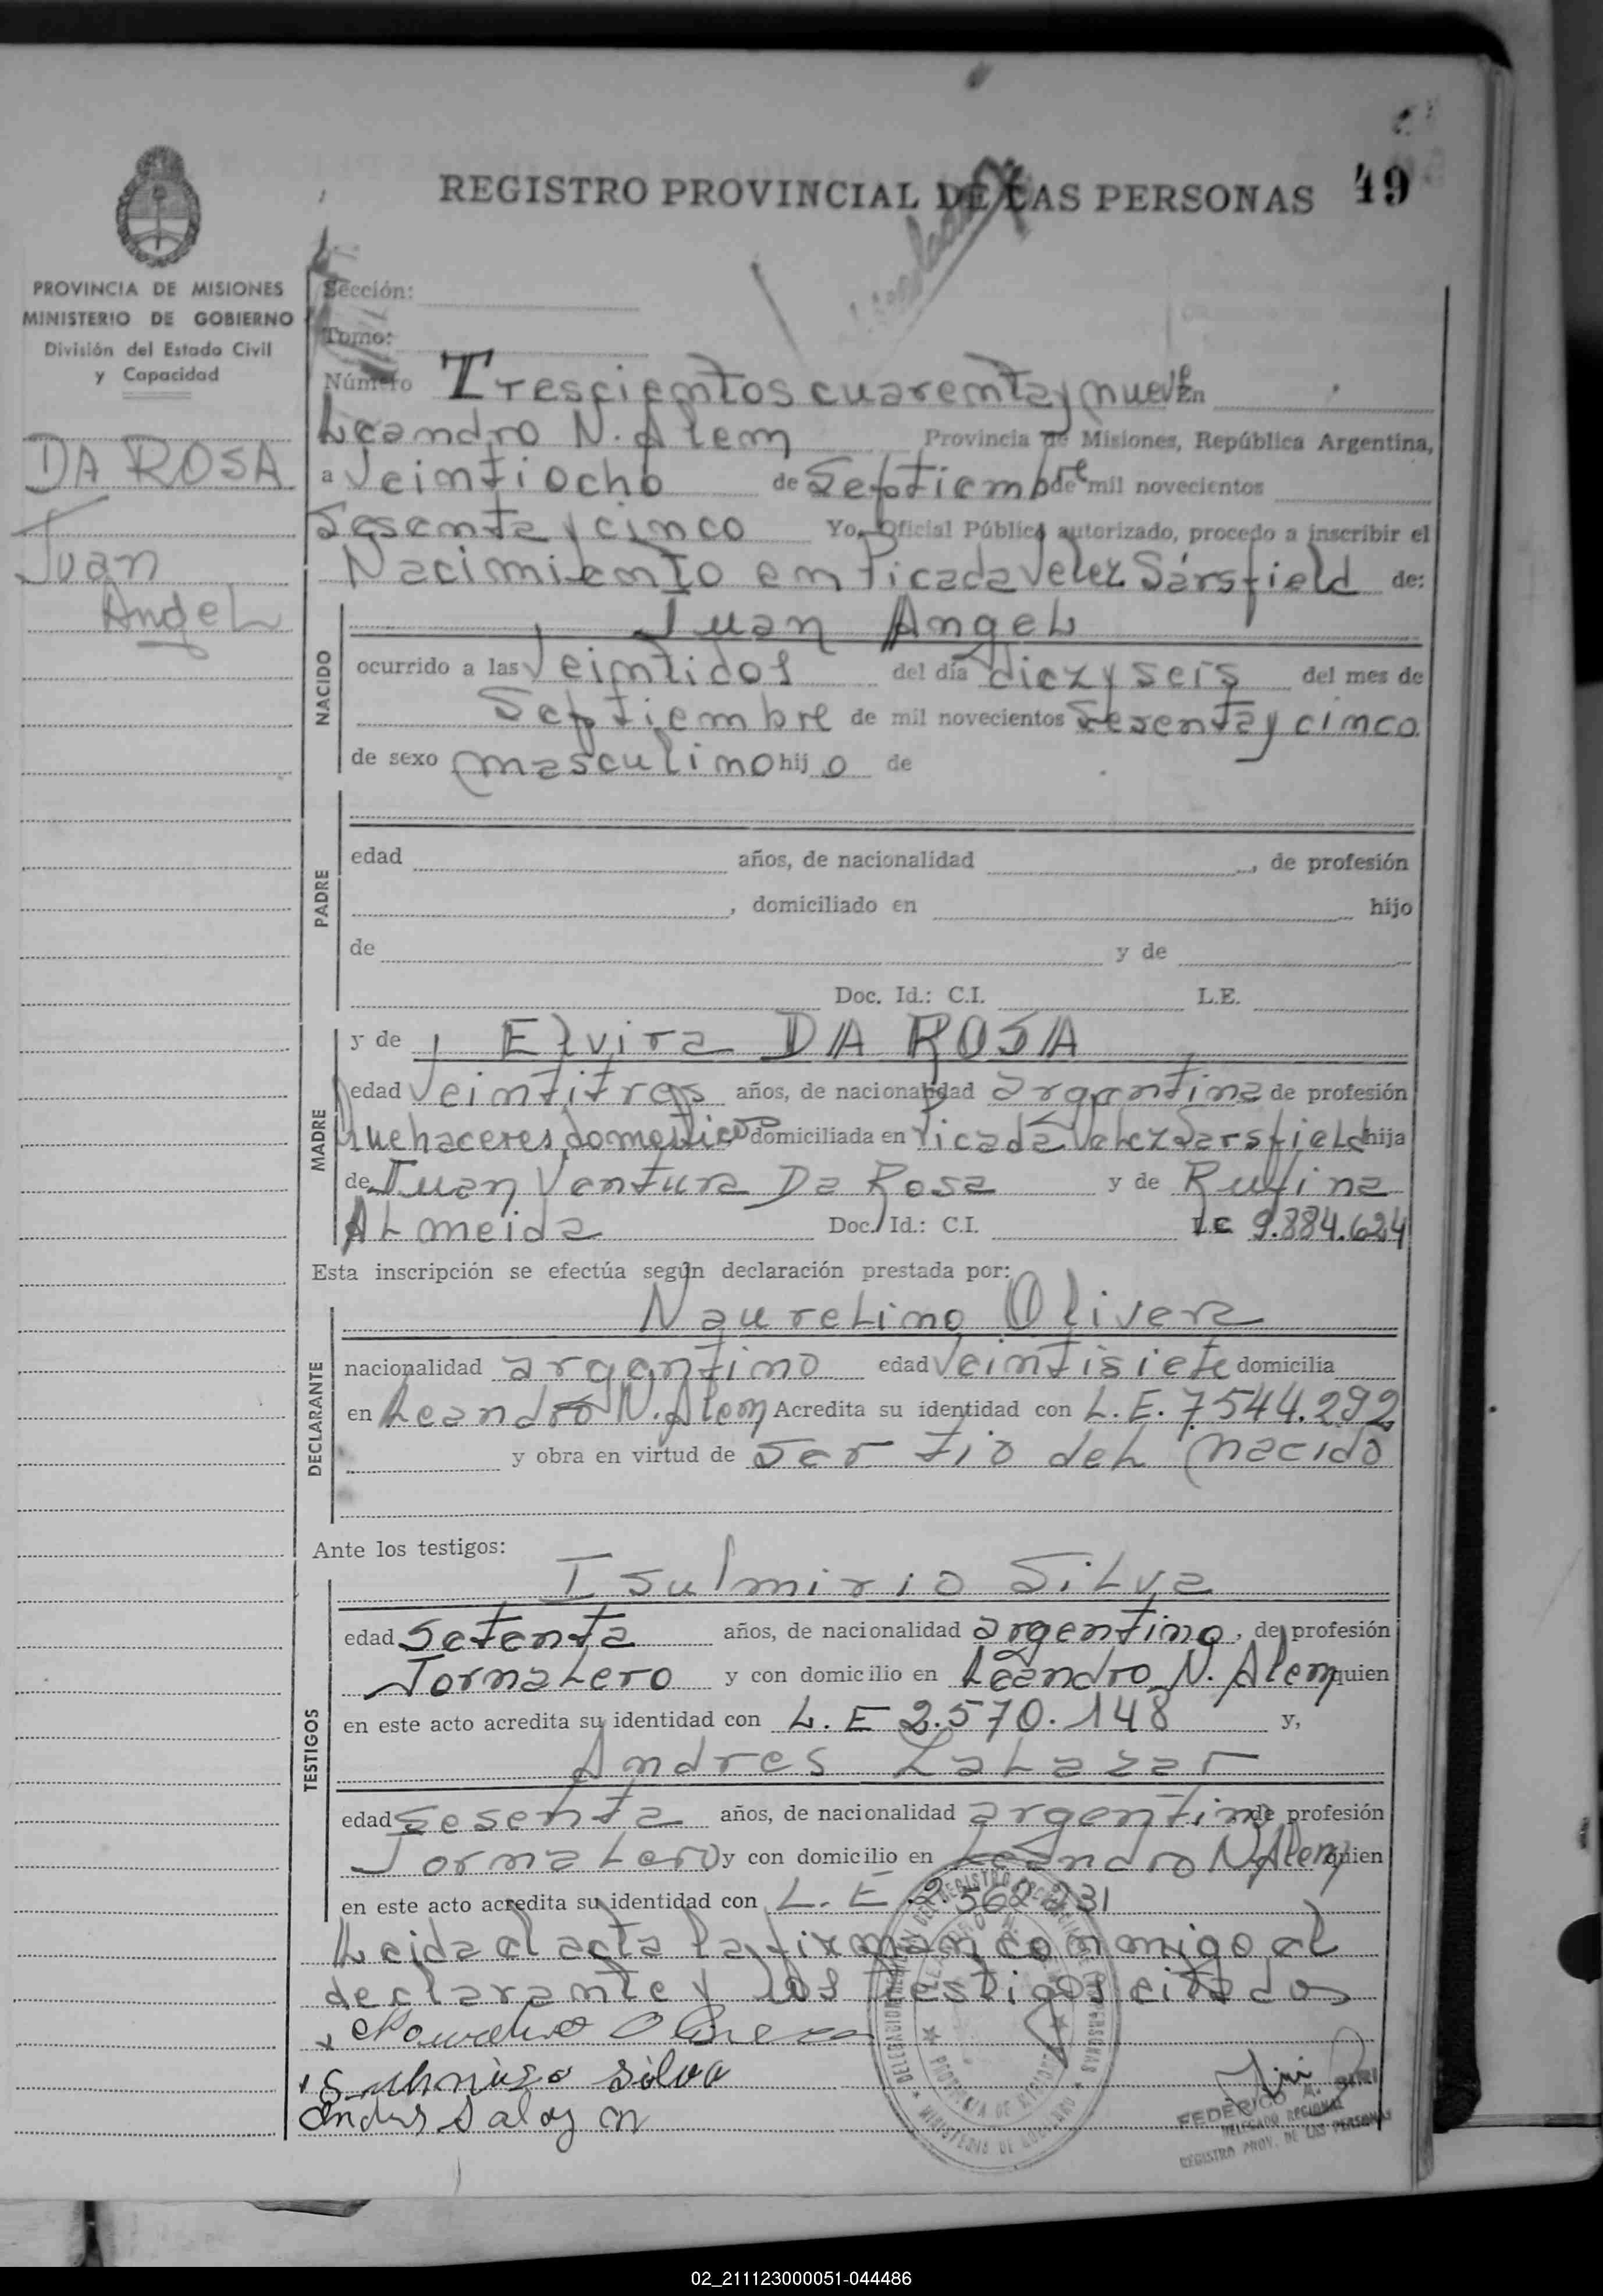 REGISTRO PROVINCIAL DE LAS PERSONAS 49
PROVINCIA DE MISIONES
MINISTERIO DE GOBIERNO
División del Estado Civil
y Capacidad
DA ROSA
Juan
Angel
Sección:
Tomo:
Número Trescientos cuarenta y nueve En
Leandro N. Alem Provincia de Misiones, República Argentina,
a Veintiocho de Septiembre de mil novecientos
Sesenta y cinco Yo, Oficial Público autorizado, procedo a inscribir el
Nacimiento en Picada Velez Sársfield de:
NACIDO
Juan Angel
ocurrido a las Veintidos del día diez y seis del mes de
Septiembre de mil novecientos Sesenta y cinco
de sexo masculino hijo de
PADRE
edad años, de nacionalidad , de profesión
, domiciliado en hijo
de y de
Doc. Id.: C.I. L.E.
MADRE
y de Elvira DA ROSA
edad Veintitres años, de nacionalidad argentina de profesión
quehaceres domesticos domiciliada en Picada Velez Sarsfield hija
de Juan Ventura Da Rosa y de Rufina
Almeida Doc. Id.: C.I. LC 9.884.624
Esta inscripción se efectúa según declaración prestada por:
DECLARANTE
Naurelino Olivera
nacionalidad argentino edad Veintisiete domicilia
en Leandro N. Alem Acredita su identidad con L.E. 7.544.292
y obra en virtud de ser tio del nacido
Ante los testigos:
TESTIGOS
Isulmirio Silva
edad Setenta años, de nacionalidad argentino, de profesión
Jornalero y con domicilio en Leandro N. Alem quien
en este acto acredita su identidad con L. E 2.570.148 y,
Andres Zalazar
edad Sesenta años, de nacionalidad argentino de profesión
Jornalero y con domicilio en Leandro N Alem quien
en este acto acredita su identidad con L. E 2.562
Leida el acta la firman conmigo el
declarante y los testigos citados
Olivera
silva
FEDERICO A.
DELEGADO REGIONAL
REGISTRO PROV. DE LAS PERSONAS
02_211123000051-044486